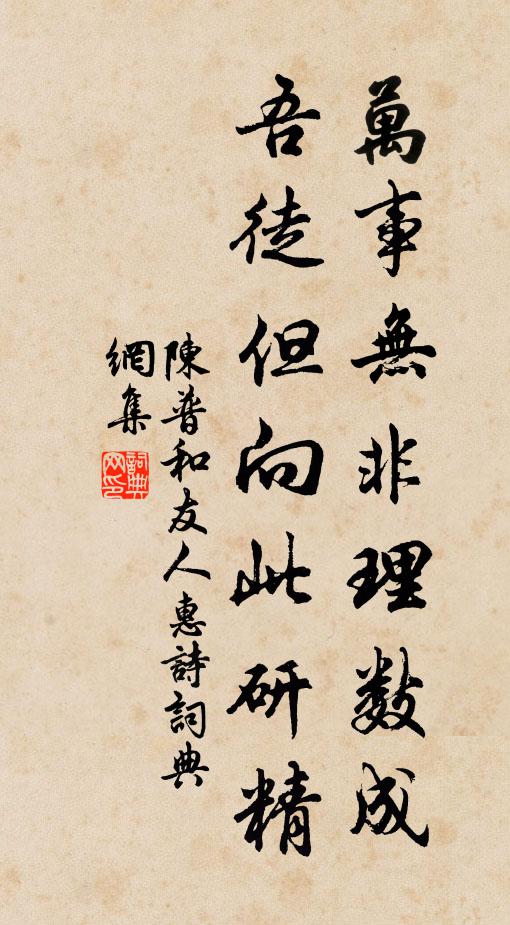 萬事無非理數成
吾徒但向此研精
陳普和友人惠詩詞典
網集
詞典網印